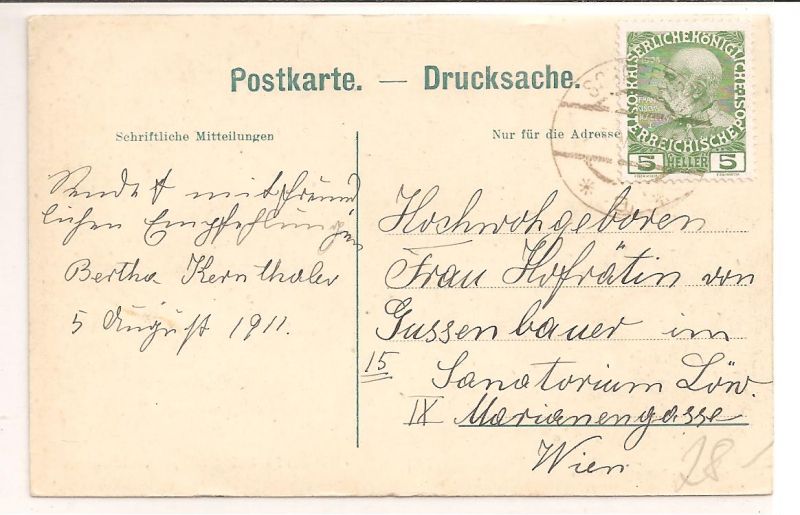 Postkarte. — Drucksache.
Schriftliche Mitteilungen
Nur für die Adresse
KAISERLICHE KÖNIGLICHE
ÖSTERREICHISCHE
5 HELLER 5
Sendet mit freund
lichen Empfehlungen
Bertha Kernthaler
5 August 1911.
Hochwohgeboren
Frau Hofrätin von
Gussenbauer im
15 Sanatorium Löw.
IX Marianengasse
Wien
28